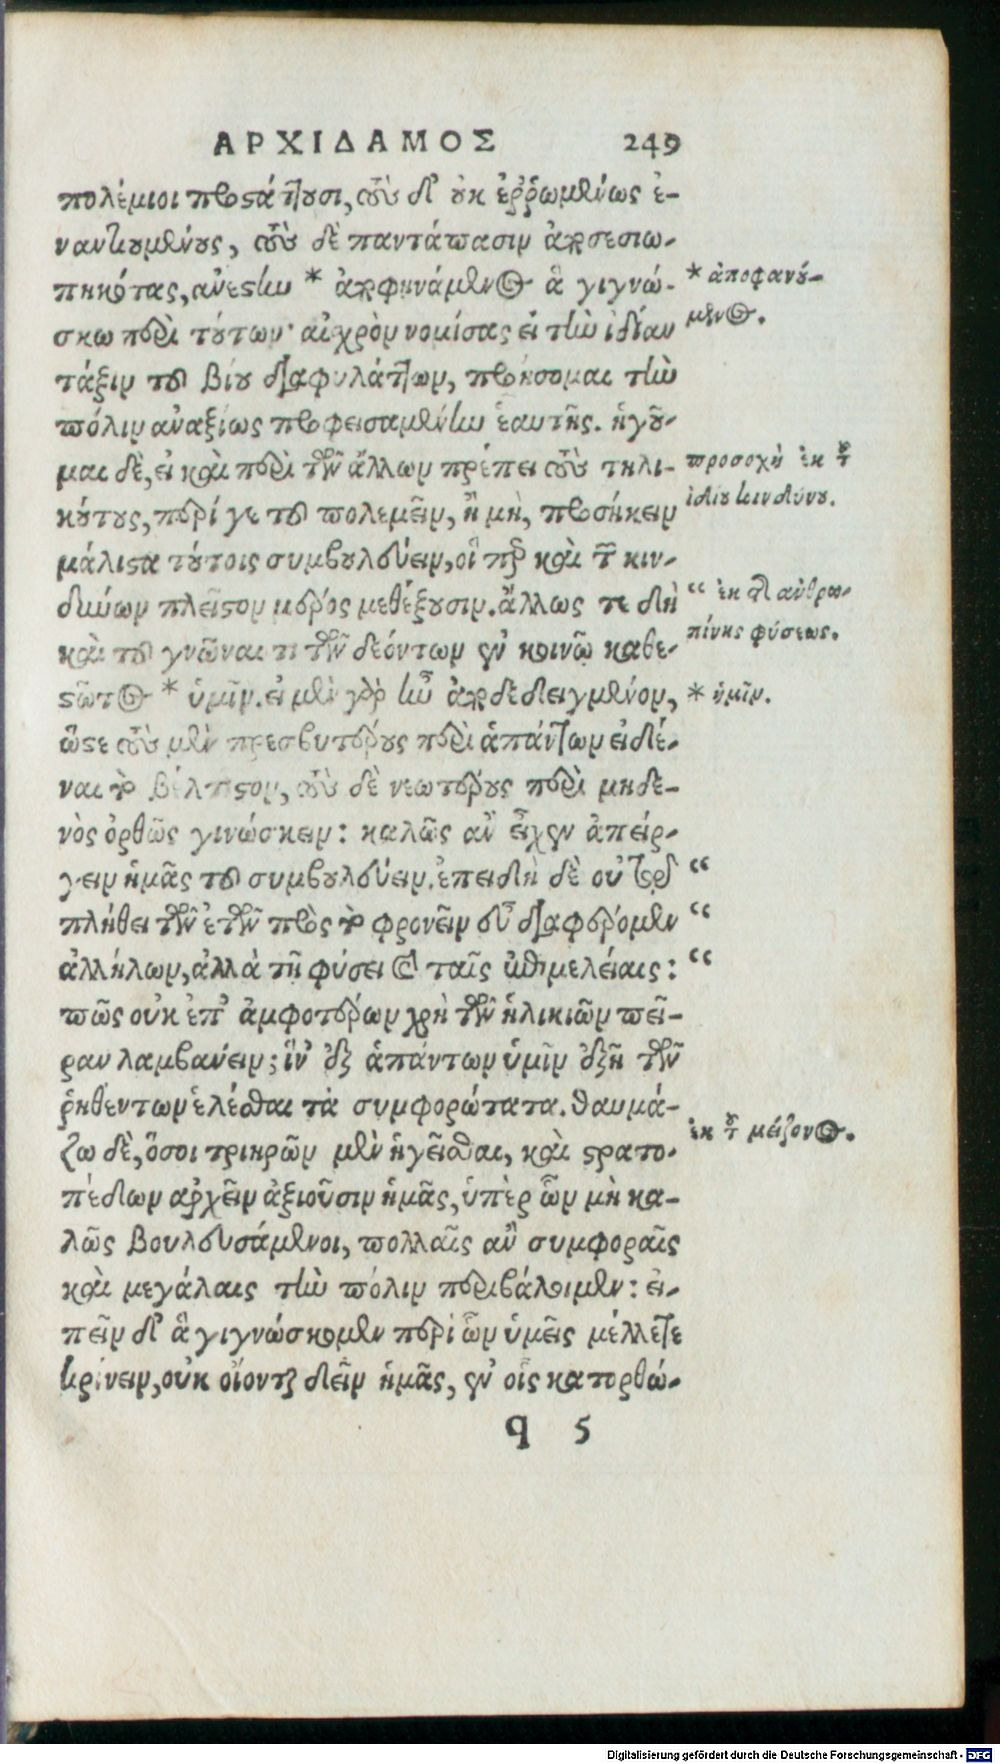 ΑΡΧΙΔΑΜΟΣ 249
πολέμιοι προςάττουσι, τοὺς δ' οὐκ ἐῤῥωμένως ἐ-
ναντιουμένους, τοὺς δὲ παντάπασιν ἀποσεσιω-
πηκότας, ἀνέστην * ἀποφηνάμενος ἃ γιγνώ-
* ἀποφανού-
μενος.
σκω περὶ τούτων· αἰχρὸν νομίσας εἰ τὴν ἰδίαν
τάξιν τοῦ βίου διαφυλάττων, προήσομαι τὴν
πόλιν ἀναξίως προφεισαμένην ἑαυτῆς. ἡγοῦ-
μαι δὲ, εἰ καὶ περὶ τῶν ἄλλων πρέπει τοὺς τηλι-
προσοχὴ ἐκ τοῦ
ἰδίου κινδύνου.
κούτους, περί γε τοῦ πολεμεῖν, ἢ μὴ, προσήκειν
μάλιστα τούτοις συμβουλεύειν, οἵ περ καὶ τῶν κιν-
δύνων πλεῖστον μέρος μεθέξουσιν. ἄλλως τε δὴ
“ ἐκ τῆς ἀνθρω-
πίνης φύσεως.
καὶ τοῦ γνῶναι τι τῶν δεόντων ἐν κοινῷ καθε-
στῶτος * ὑμῖν. εἰ μὲν γὰρ ἦν ἀποδεδειγμένον,
* ἡμῖν.
ὥστε τοὺς μὲν πρεσβυτέρους περὶ ἁπάντων εἰδέ-
ναι τὸ βέλτιστον, τοὺς δὲ νεωτέρους περὶ μηδε-
νὸς ὀρθῶς γινώσκειν: καλῶς ἂν εἶχεν ἀπείρ-
γειν ἡμᾶς τοῦ συμβουλεύειν. ἐπειδὴ δὲ οὐ τῷ “
πλήθει τῶν ἐτῶν πρὸς τὸ φρονεῖν εὖ διαφέρομεν “
ἀλλήλων, ἀλλὰ τῇ φύσει καὶ ταῖς ἐπιμελείαις: “
πῶς οὐκ ἐπ' ἀμφοτέρων χρὴ τῶν ἡλικιῶν πεῖ-
ραν λαμβανειν; ἵν' ἐξ ἁπάντων ὑμῖν ἐξῇ τῶν
ῥηθέντων ἑλέσθαι τὰ συμφορώτατα. θαυμά-
ζω δὲ, ὅσοι τριηρῶν μὲν ἡγεῖσθαι, καὶ στρατο-
ἐκ τοῦ μείζονος.
πέδων ἀρχεῖν ἀξιοῦσιν ἡμᾶς, ὑπὲρ ὧν μὴ κα-
λῶς βουλευσάμενοι, πολλαῖς ἂν συμφοραῖς
καὶ μεγάλαις τὴν πόλιν περιβάλοιμεν: εἰ-
πεῖν δ' ἃ γιγνώσκομεν περὶ ὧν ὑμεῖς μέλλετε
κρίνειν, οὐκ οἴονται δεῖν ἡμᾶς, ἐν οἷς κατορθώ-
q 5
Digitalisierung gefördert durch die Deutsche Forschungsgemeinschaft - DFG